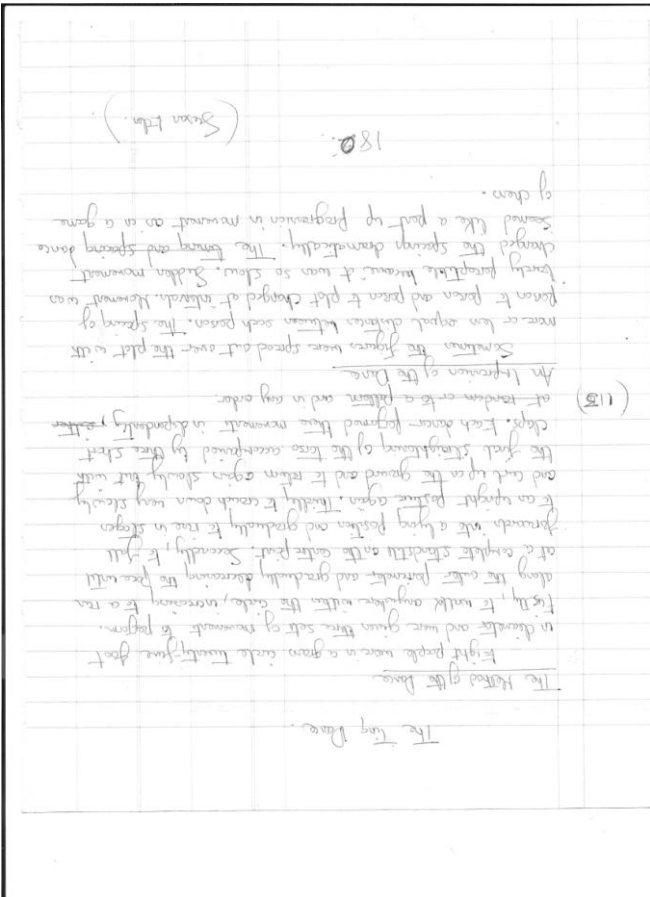 The Ting Dance.
The Method of the Dance
Eight people were in a grass circle twenty-five foot
in diameter and were given three sets of movement to perform.
Firstly, to walk anywhere within the circle, increasing to a run
along the outer perimeter and gradually decreasing the pace until
at a complete standstill on the centre point. Secondly, to fall
forwards into a lying position and gradually to rise in stages
to an upright posture again. Thirdly to crouch down very slowly
and curl up on the ground and to return again slowly but with
the final straightening of the torso accompanied by three short
claps. Each dancer performed these movements independently, either
at random or to a pattern and in any order.
(113)
An Impression of the Dance.
Sometimes the figures were spaced out over the plot with
more or less equal distances between each person. The spacing of
person to person and person to plot changed at intervals. Movement was
barely perceptible because it was so slow. Sudden movement
changed the spacing dramatically. The timing and spacing dance
seemed like a pent up progression in movement as in a game
of chess.
180.
(Susan Eden.)